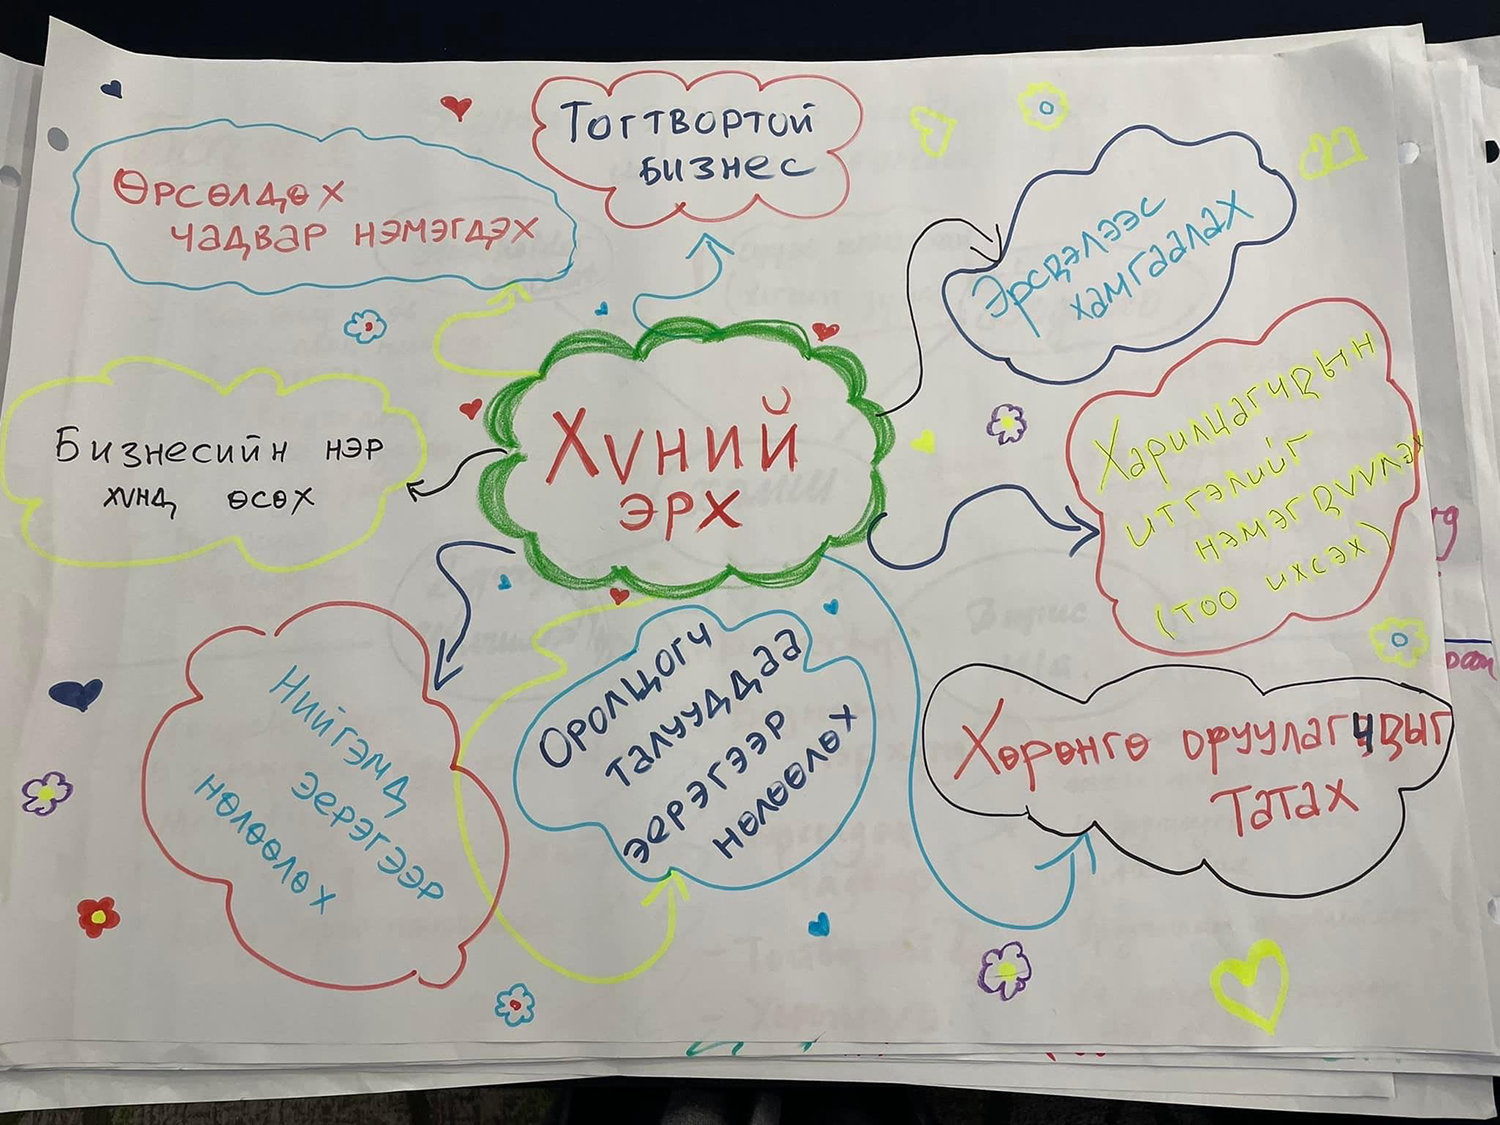 Тогтвортой
бизнес
Өрсөлдөх
чадвар нэмэгдэх
Эрсдэлээс
хамгаалах
Бизнесийн нэр
хүнд өсөх
Хүний
эрх
Харилцагчдын
итгэлийг
нэмэгдүүлэх
(тоо ихсэх)
Нийгэмд
эерэгээр
нөлөөлөх
Оролцогч
талууддаа
эерэгээр
нөлөөлөх
Хөрөнгө оруулагчдыг
татах